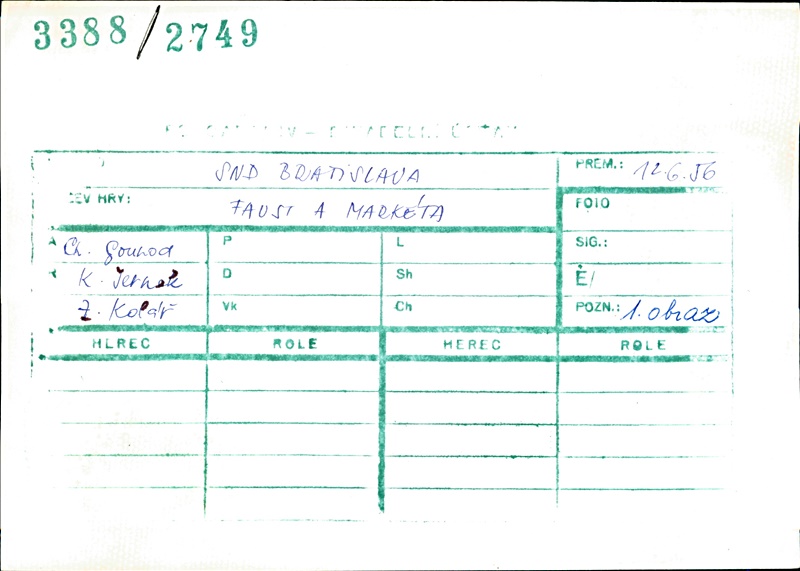 3388/2749
SND BRATISLAVA
PREM.: 12.6.56
ZEV HRY: FAUST A MARKÉTA
FOTO
A Ch. Gounod P L SIG.:
R K. Jernek D Sh Č/
Z. Kolář Vk Ch POZN.: 1. obraz
HEREC ROLE HEREC ROLE